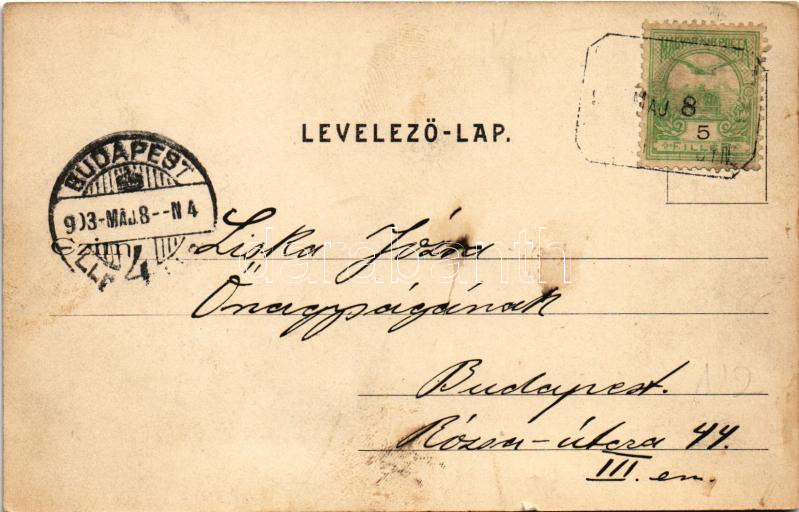 MAGYAR KIR. POSTA
MÁJ 8
5
FILLÉR
LEVELEZŐ-LAP.
BUDAPEST
903-MÁJ.8--N4
Czim
Liska Józsa
Őnagyságának
darabanth
Budapest.
Rózsa-utcza 44.
III. em.